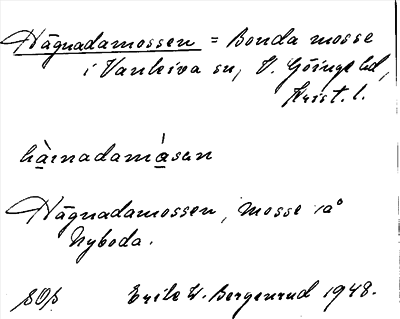 Hägnadamossen = Bonda mosse
i Vankiva sn, V. Göinge hd,
Krist. l.
hä̀inadamå̀san
Hägnadamossen, mosse på
Nyboda.
Erik W. Bergenrud 1948.